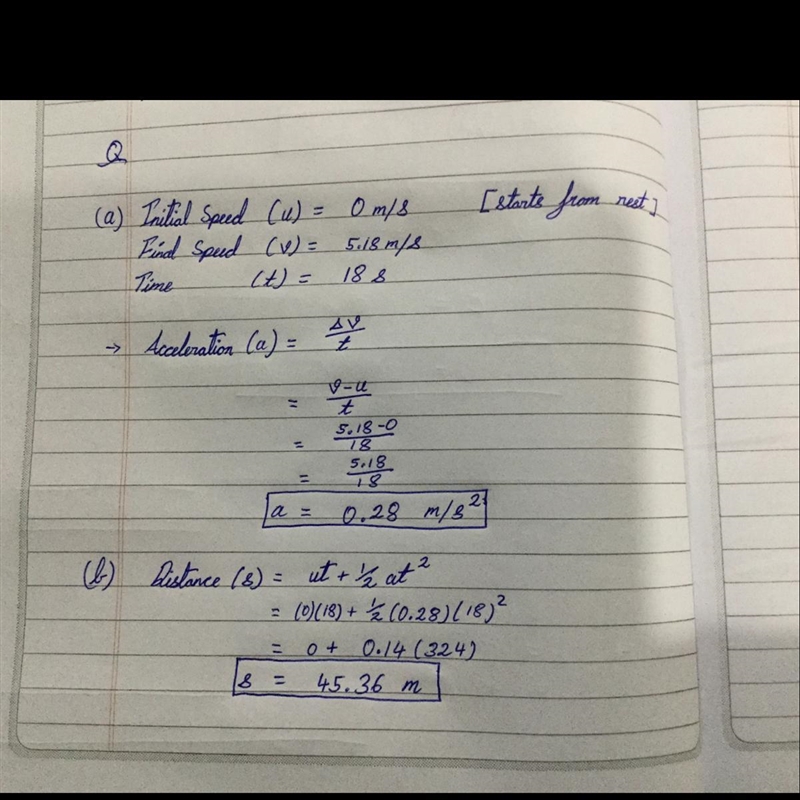 Q
(a) Initial Speed (u) = 0 m/s [starts from rest]
Final Speed (v) = 5.18 m/s
Time (t) = 18 s
→ Acceleration (a) = Δv/t
= v-u/t
= 5.18-0/18
= 5.18/18
a = 0.28 m/s²
(b) Distance (s) = ut + 1/2 at²
= (0)(18) + 1/2 (0.28)(18)²
= 0 + 0.14 (324)
s = 45.36 m